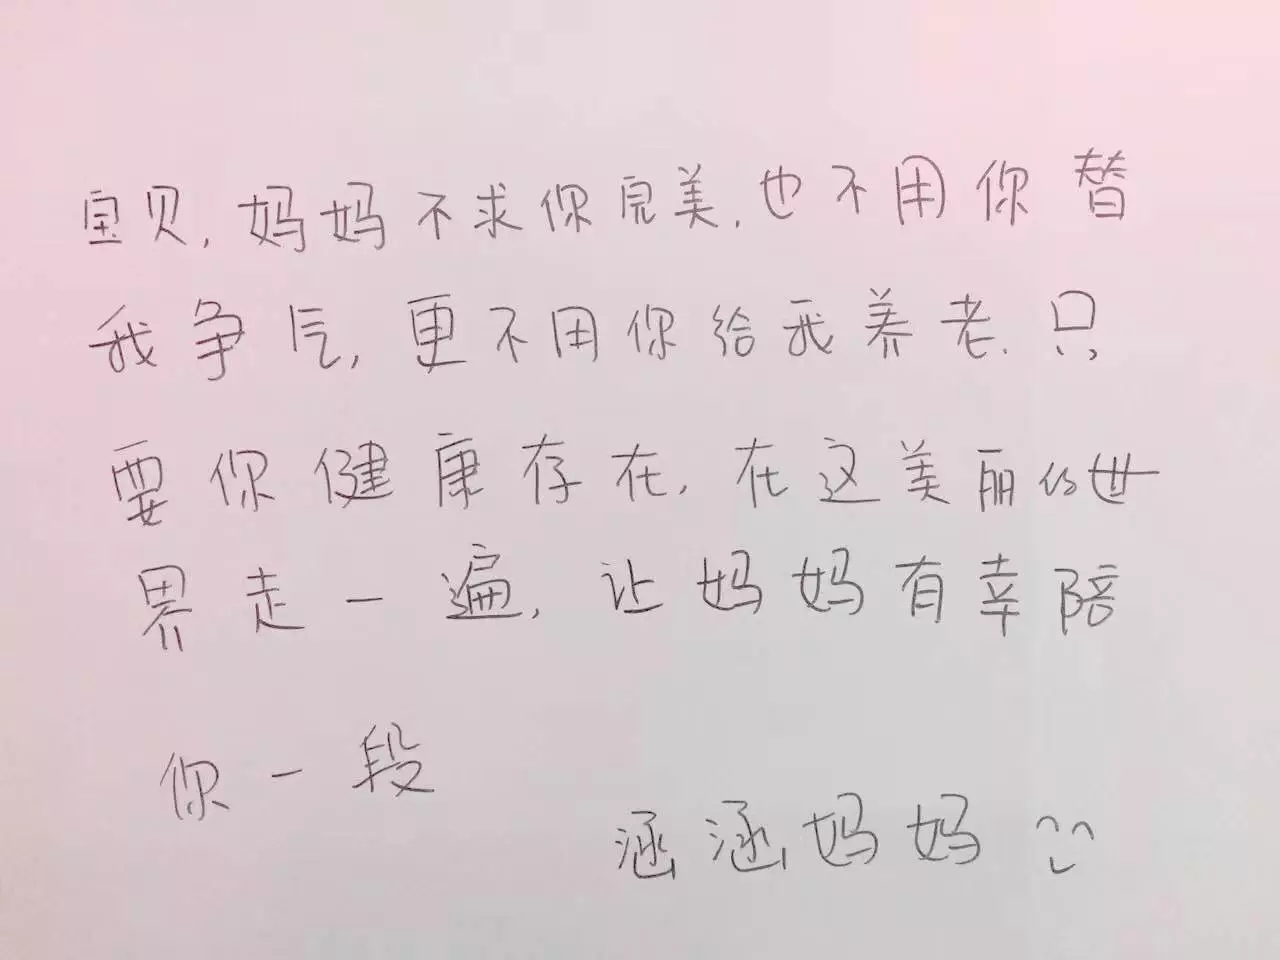 宝贝,妈妈不求你完美,也不用你替
我争气,更不用你给我养老.只
要你健康存在,在这美丽的世
界走一遍,让妈妈有幸陪
你一段
涵涵妈妈